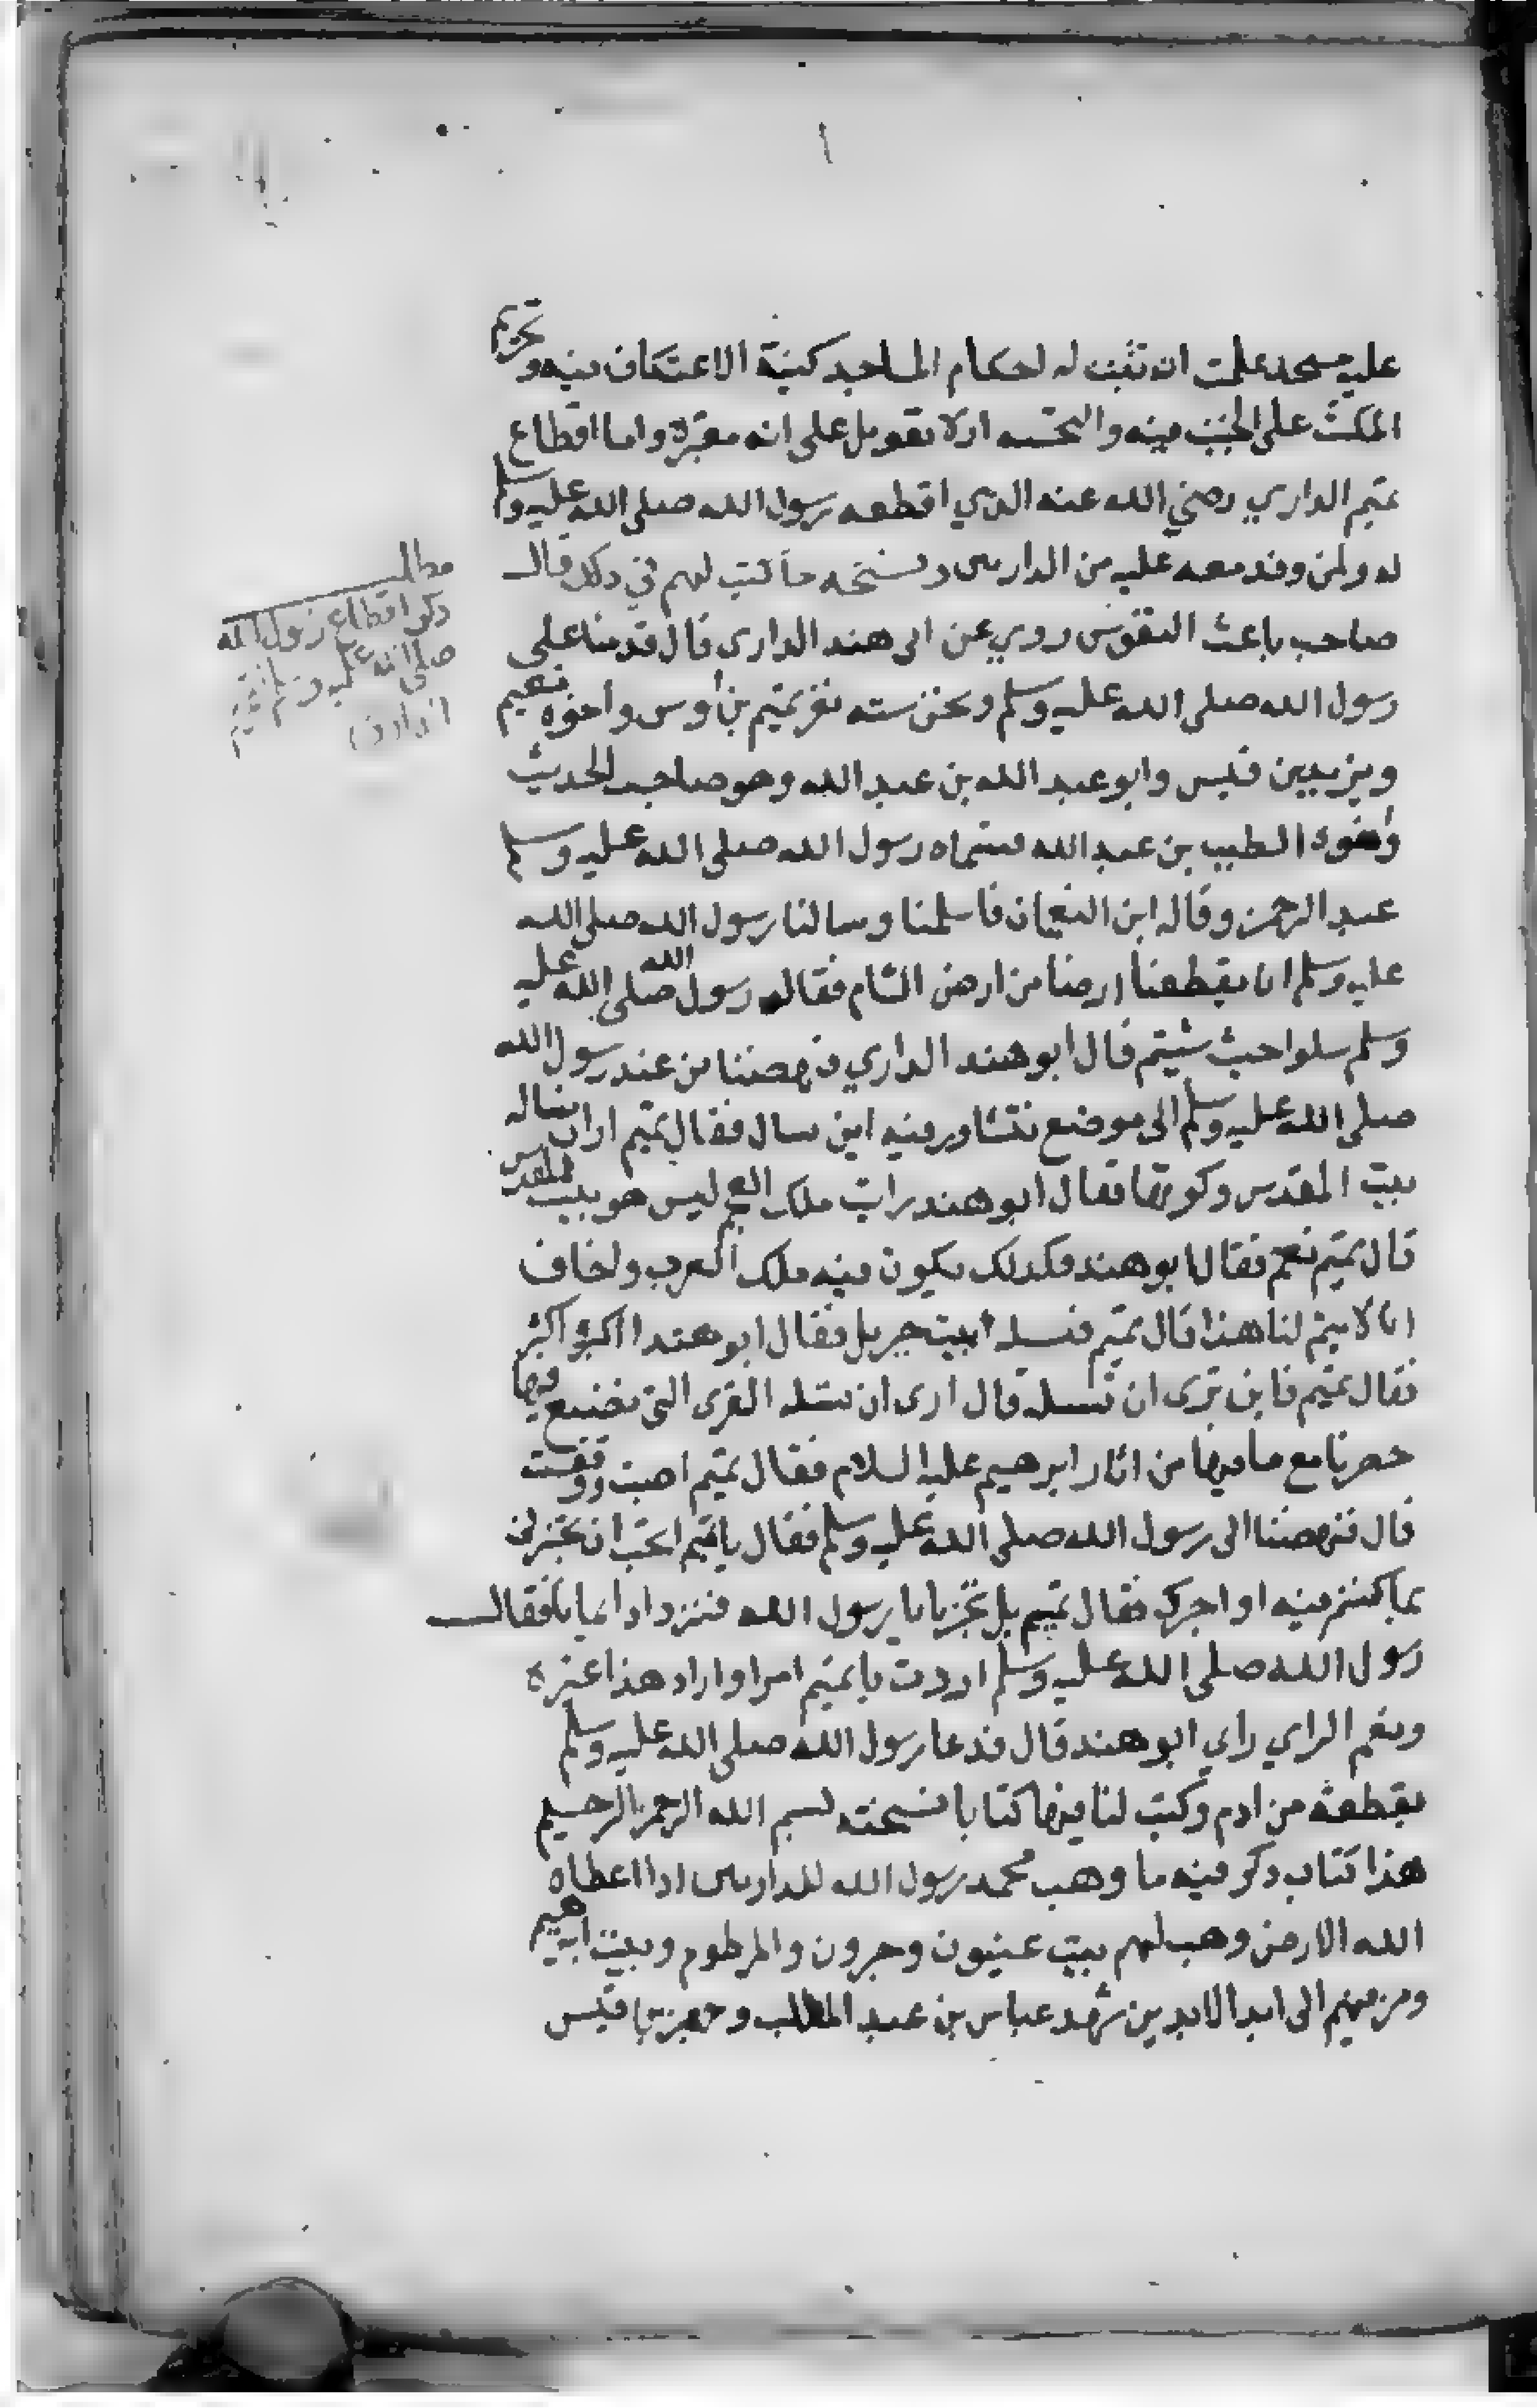 عليه مسجد علمت ان تثبت له احكام المساجد كنية الاعتكاف فيه وتحريم
المكث على الجنب فيه والتحيه اولا تعويل على انه مقبرة واما اقطاع
تميم الداري رضي الله عنه الدي اقطعه رسول الله صلى الله عليه وسلم
له ولمن وفد معه عليه من الداريين ونسخه ما كتب لهم في دلك قال
صاحب باعث النفوس روي عن ابي هند الداري قال قدمنا على
رسول الله صلى الله عليه وسلم ونحن سته نفر تميم بن اوس واخوه نعيم
ويزيد بن قيس وابو عبد الله بن عبد الله وهو صاحب الحديث
واخوه الطيب بن عبد الله فسماه رسول الله صلى الله عليه وسلم
عبد الرحمن وفاكه ابن النعمان فاسلمنا وسالنا رسول الله صلى الله
عليه وسلم ان يقطعنا ارضا من ارض الشام فقال رسول الله صلى الله عليه
وسلم سلوا حيث شيتم قال ابو هند الداري فنهضنا من عند رسول الله
صلى الله عليه وسلم الى موضع نتشاور فيه اين نسال فقال تميم ارا ان نساله
بيت المقدس وكورتها فقال ابو هند رايت ملك العجم ليس هو ببيت المقدس
قال تميم نعم فقال ابو هند فكدلك يكون فيه ملك العرب ولخاف
ان لا يتم لنا هذا قال تميم فنسله بيت جبريل فقال ابو هند اكبر واكثر
فقال تميم فاين ترى ان نسله قال ارى ان نسله القرى التي نصنع فيها
حصرنا مع ما فيها من اثار ابرهيم عليه السلام فقال تميم اصبت ووفقت
قال فنهضنا الى رسول الله صلى الله عليه وسلم فقال ياتميم اتحب ان تخبرني
بما كنتم فيه او اخبرك فقال تميم بل تخبرنا يا رسول الله فنزداد ايمانا فقال
رسول الله صلى الله عليه وسلم اردت ياتميم امرا واراد هذا غيره
ونعم الراي راي ابو هند قال فدعا رسول الله صلى الله عليه وسلم
بقطعة من ادم وكتب لنا فيها كتابا نسخته بسم الله الرحمن الرحيم
هذا كتاب دكر فيه ما وهب محمد رسول الله للداريين ادا اعطاه
الله الارض وهب لهم بيت عينون وحبرون والمرطوم وبيت ابرهيم
ومن فيهم الى ابد الابدين شهد عباس بن عبد المطلب وخزيمة بن قيس
مطلب
دكر اقطاع رسول الله
صلى الله عليه وسلم لتميم
الداري